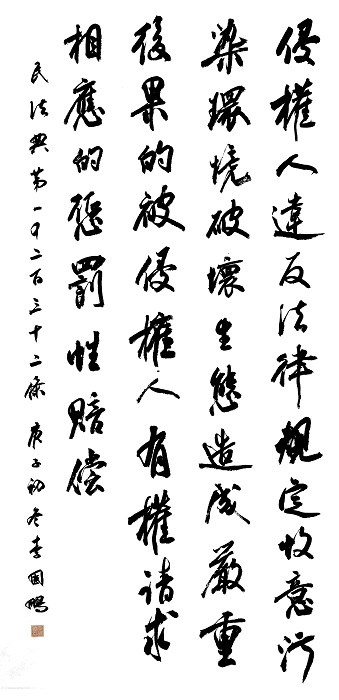 侵權人違反法律規定故意污
染環境破壞生態造成嚴重
後果的被侵權人有權請求
相應的懲罰性賠償
民法典第一千二百三十二條 庚子初冬李國鵬